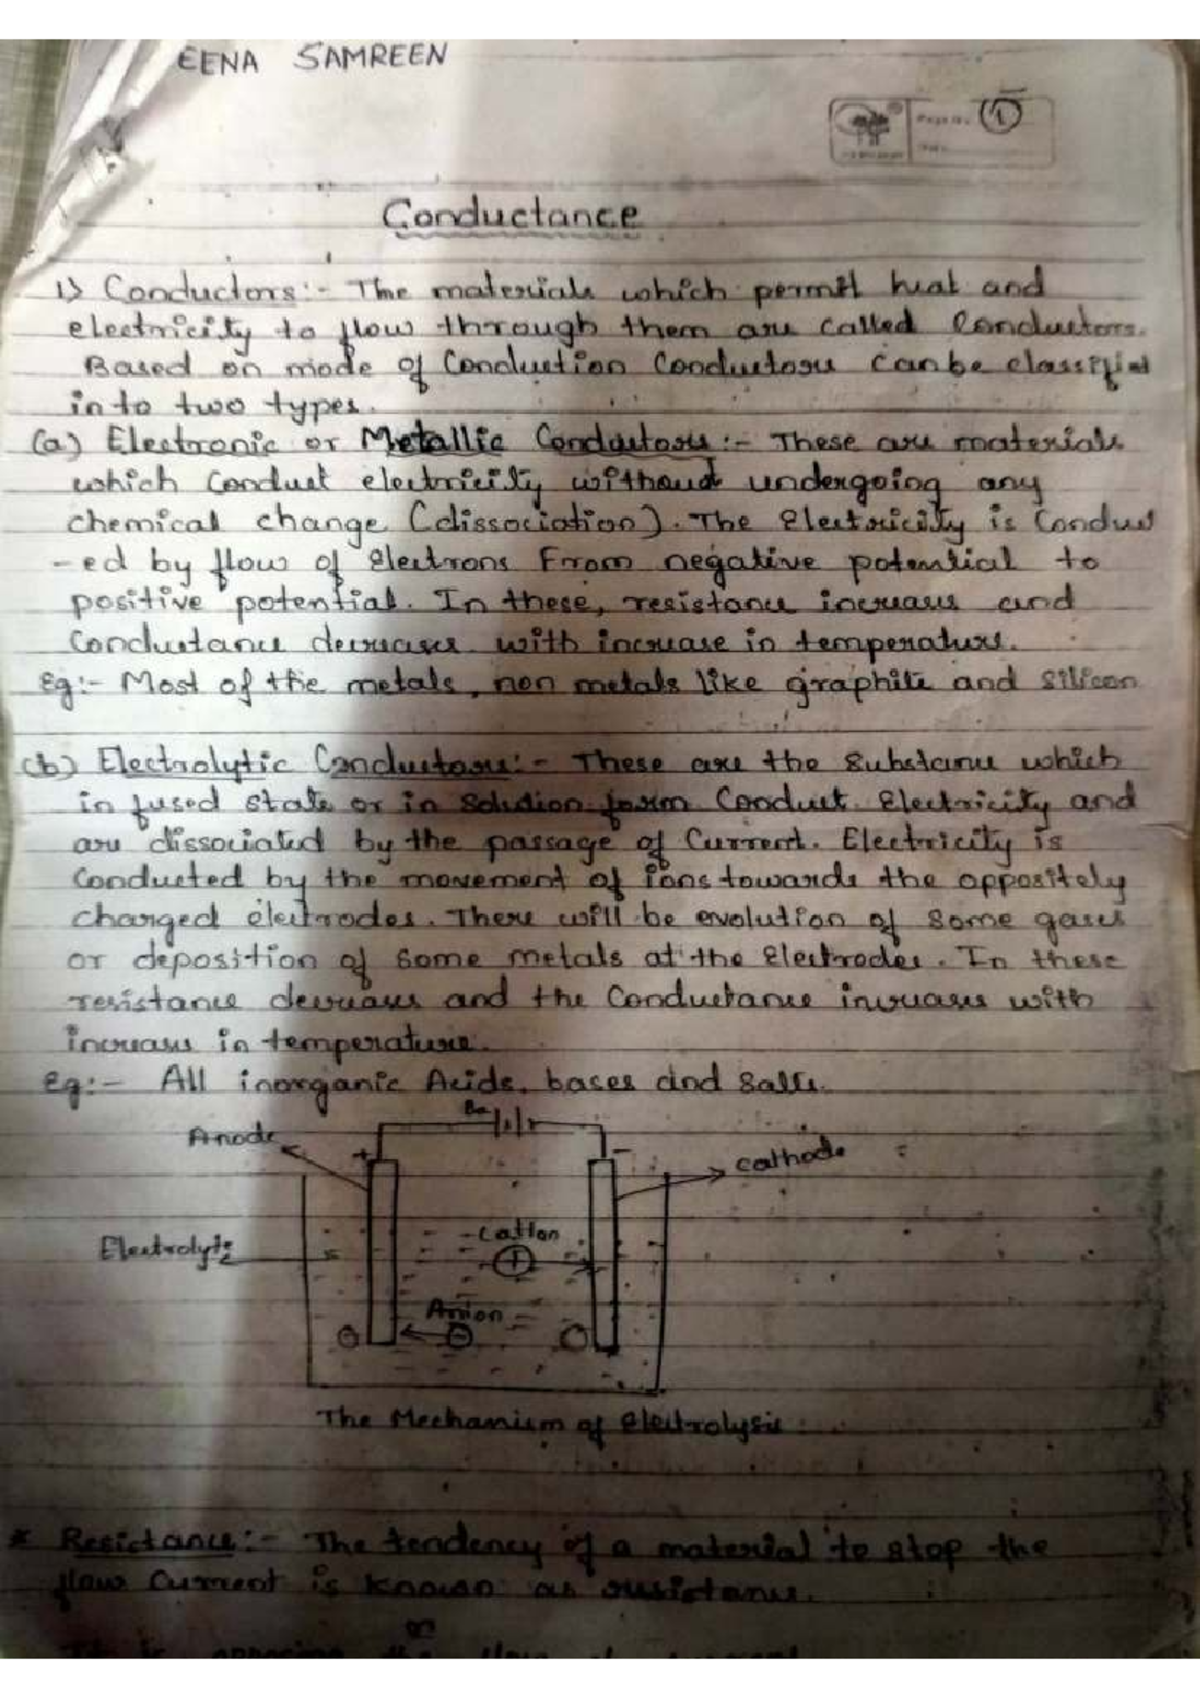 EENA SAMREEN
Page No. 1
Conductance
1) Conductors :- The materials which permit heat and
electricity to flow through them are called Conductors.
Based on mode of Conduction Conductors can be classified
into two types.
(a) Electronic or Metallic Conductors :- These are materials
which Conduct electricity without undergoing any
chemical change (dissociation). The Electricity is Conduct
-ed by flow of electrons From negative potential to
positive potential. In these, resistance increases and
Conductance decreases with increase in temperature.
Eg:- Most of the metals, non metals like graphite and silicon
(b) Electrolytic Conductors :- These are the Substance which
in fused state or in Solution form Conduct Electricity and
are dissociated by the passage of Current. Electricity is
Conducted by the movement of ions towards the oppositely
charged electrodes. There will be evolution of some gases
or deposition of some metals at the Electrodes. In these
resistance decreases and the Conductance increases with
increase in temperature.
Eg:- All inorganic Acids, bases and Salts.
Anode
+
-
Cathode
Electrolyte
Cation
+
Anion
The Mechanism of electrolysis
* Resistance :- The tendency of a material to stop the
flow Current is known as resistance.
or
It is opposing the flow of current